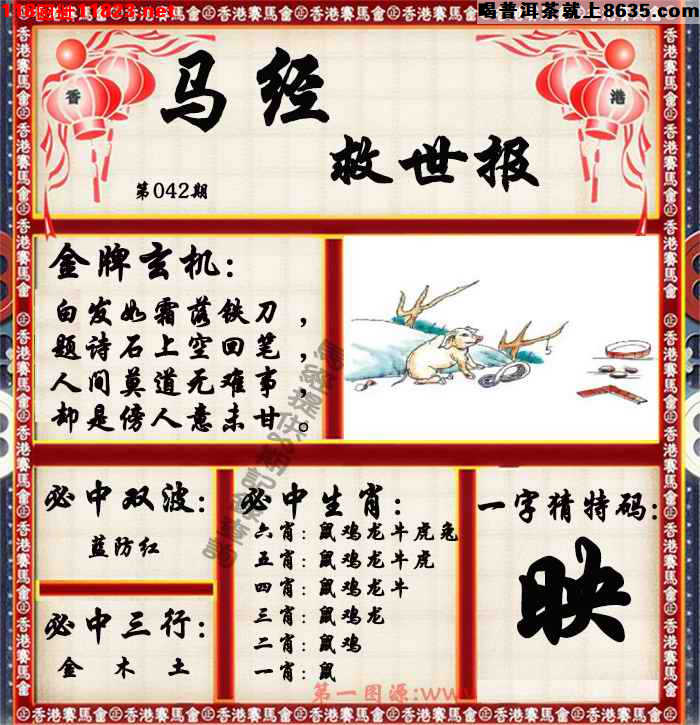 喝普洱茶就上8635.com
香 港
马经
救世报
第042期
金牌玄机：
白发如霜落铁刀，
题诗石上空回笔，
人间莫道死难事，
却是傍人意未甘。
必中双波：
蓝防红
必中三行：
金 木 土
必中生肖：
六肖：鼠鸡龙牛虎兔
五肖：鼠鸡龙牛虎
四肖：鼠鸡龙牛
三肖：鼠鸡龙
二肖：鼠鸡
一肖：鼠
一字猜特码：
映
第一图源:www
香港賽馬會